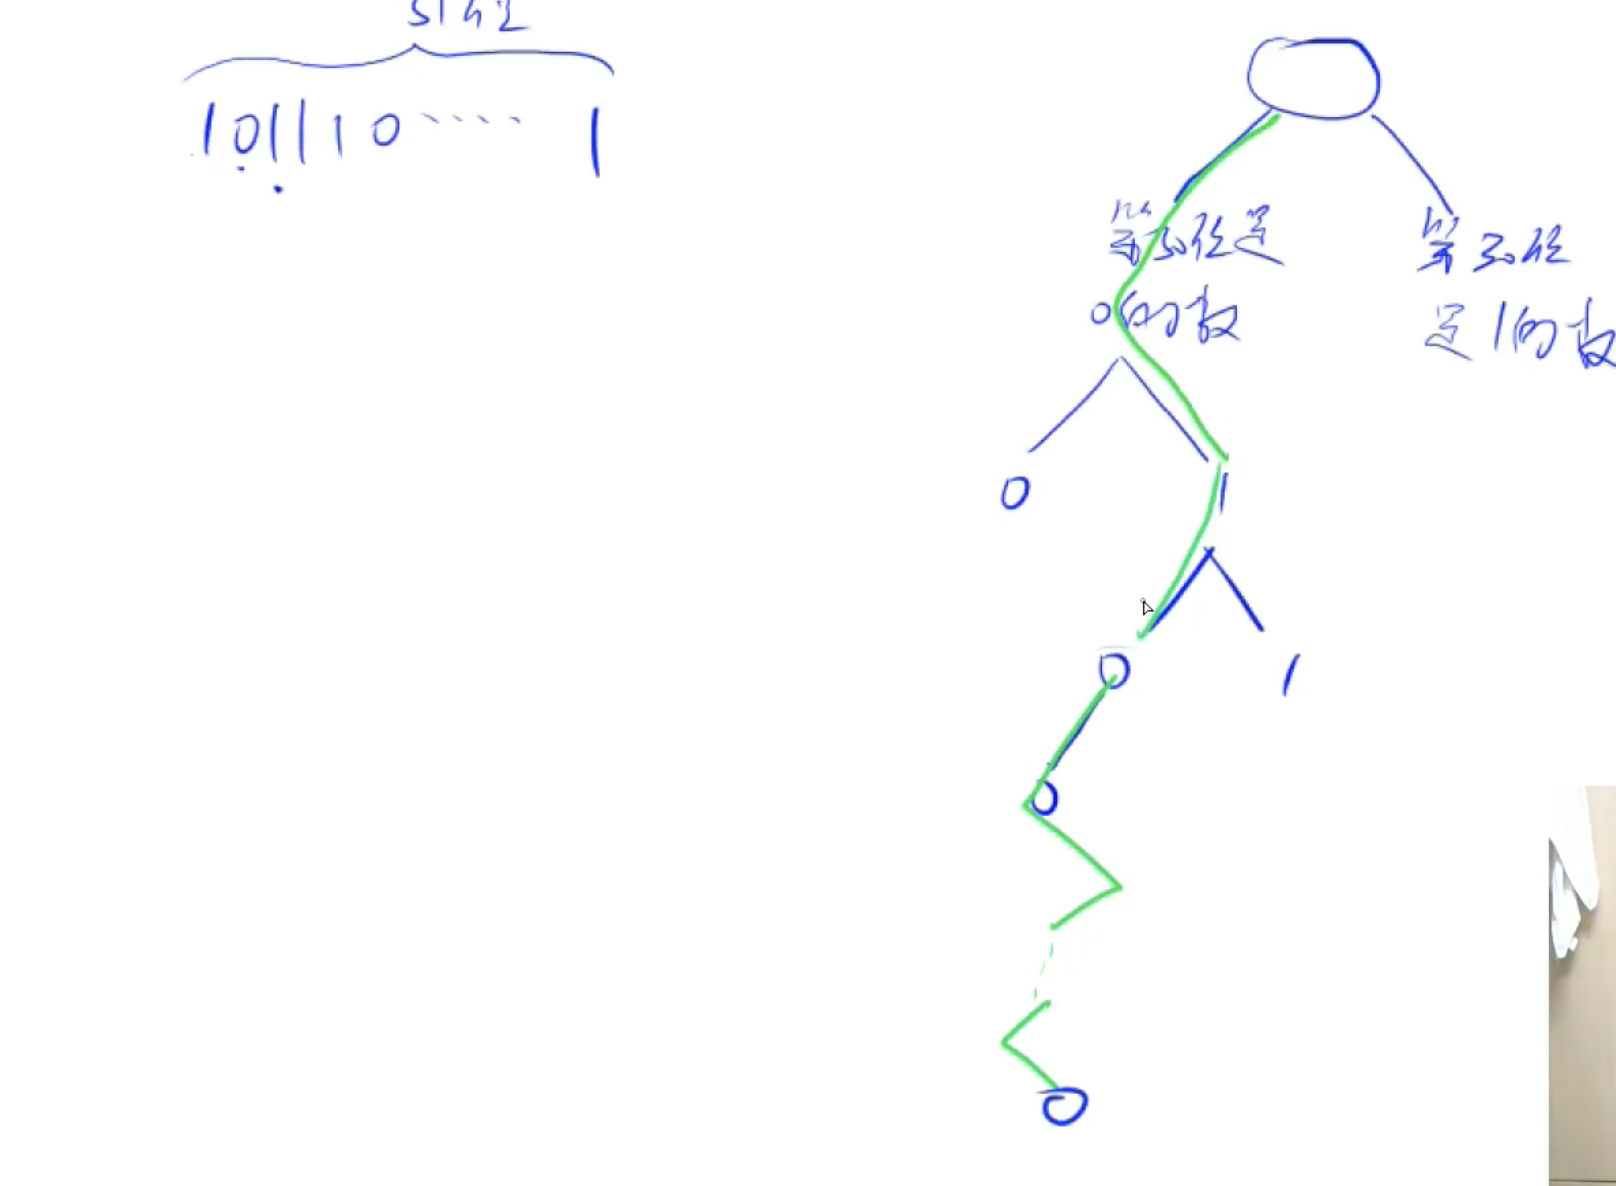 31位
101110 ···· 1
第30位是
0的数
第30位
是1的数
0
1
0
1
0
0